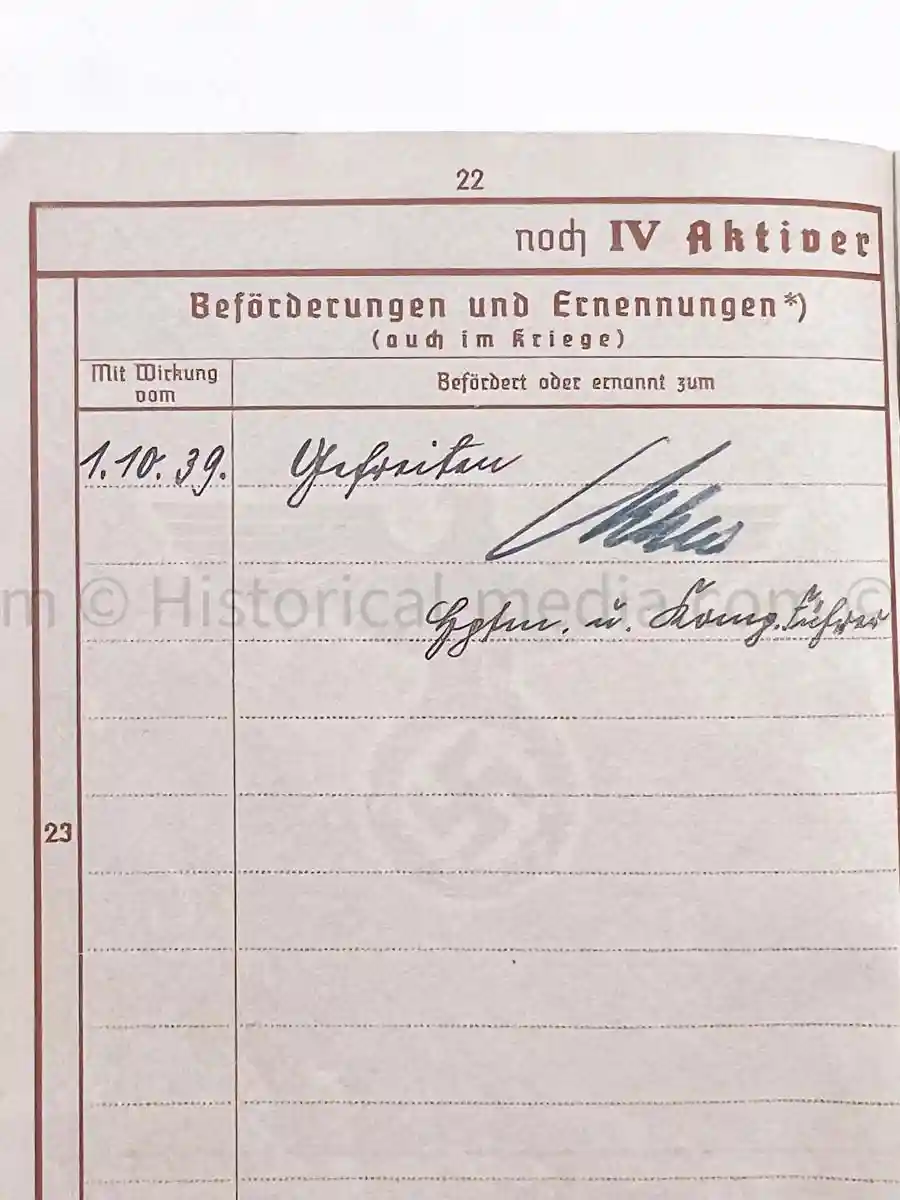 22
noch IV Aktiver
Beförderungen und Ernennungen*)
(auch im Kriege)
Mit Wirkung
vom
Befördert oder ernannt zum
1.10.39. Gefreiten
m © Historical-media.com ©
Hptm. u. Komp. Führer
23